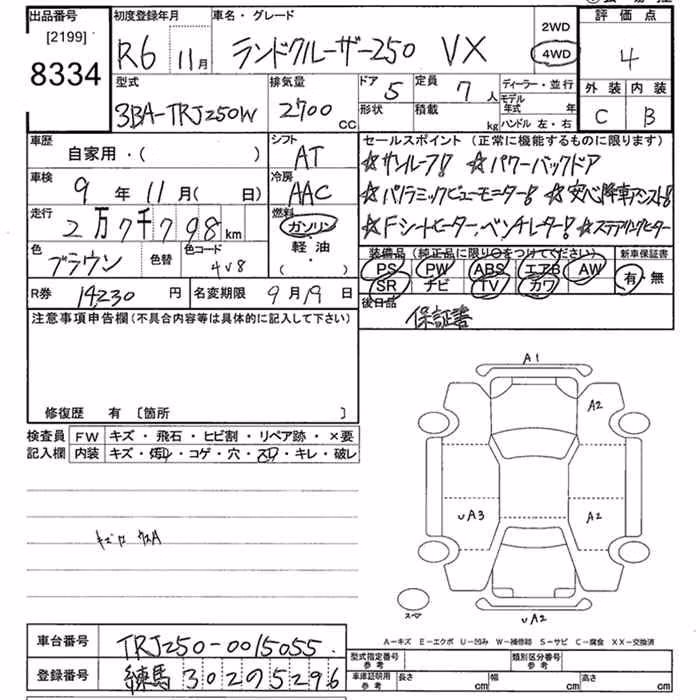 出品番号 初度登録年月 車名・グレード 評価点
[2199] R6 11月 ランドクルーザー250 VX 2WD 4WD 4
8334
型式 排気量 ドア 5 定員 7人 ディーラー・並行 外装 内装
3BA-TRJ250W 2700 CC 形状 積載 kg モデル年式 年 C B
ハンドル 左・右
車歴 シフト セールスポイント (正常に機能するものに限ります)
自家用・( ) AT ☆サンルーフ! ☆パワーバックドア
車検 冷房 ☆パノラミックビューモニター! ☆安心降車アシスト!
9年11月(日) AAC
走行 燃料 ☆Fシートヒーター、ベンチレーター! ☆ステアリングヒーター
2万7千798km ガソリン
軽油
( ・ )
色 ブラウン 色替 色コード 4V8 装備品 (純正品に限り○をつけてください) 新車保証書
PS PW ABS エアB AW 有・無
SR ナビ TV カワ
R券 14230円 名変期限 9月19日 後日品
保証書
注意事項申告欄(不具合内容等は具体的に記入して下さい)
修復歴 有 〔箇所 〕
検査員 FW キズ・飛石・ヒビ割・リペア跡・×要
記入欄 内装 キズ・汚レ・コゲ・穴・スレ・キレ・破レ
A1
A2
UA3 A2
UA2
スペア
A-キズ E-エクボ U-凹み W-補修跡 S-サビ C-腐食 XX-交換済
車台番号 TRJ250-0015055
型式指定番号 参考 類別区分番号 参考
登録番号 練馬 302 0 5296
車庫証明用 参考 長さ cm 幅 cm 高さ cm